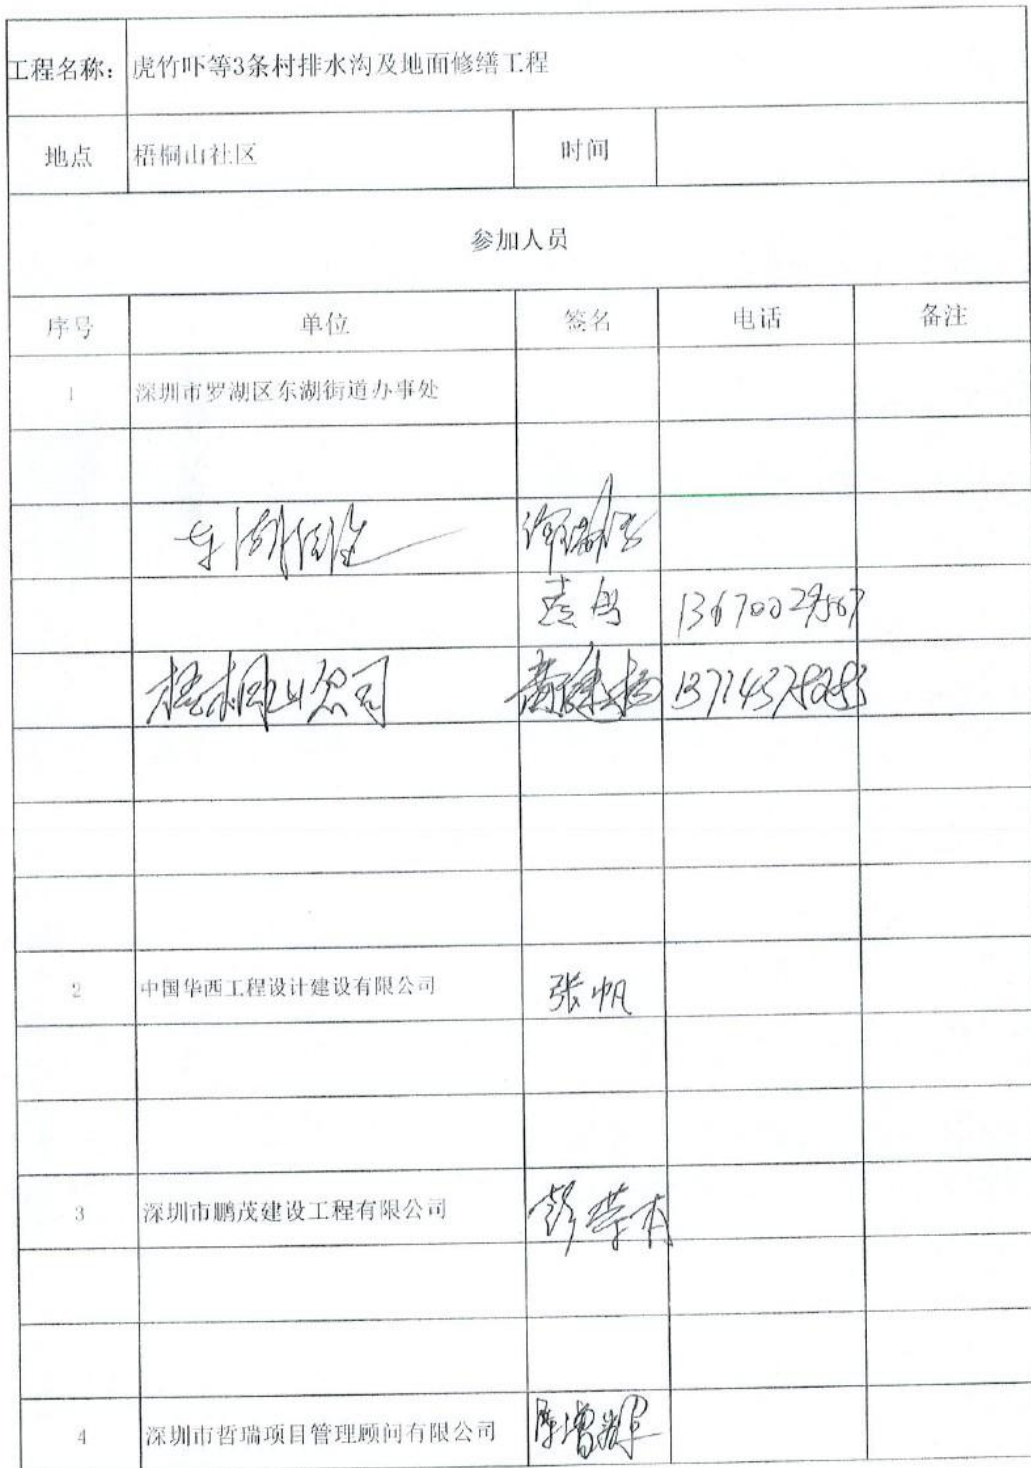 工程名称： 虎竹吓等3条村排水沟及地面修缮工程
地点 梧桐山社区 时间
参加人员
序号 单位 签名 电话 备注
1 深圳市罗湖区东湖街道办事处
东湖街道
13670029567
梧桐山公司 13714375283
2 中国华西工程设计建设有限公司 张帆
3 深圳市鹏茂建设工程有限公司 彭荣才
4 深圳市哲瑞项目管理顾问有限公司